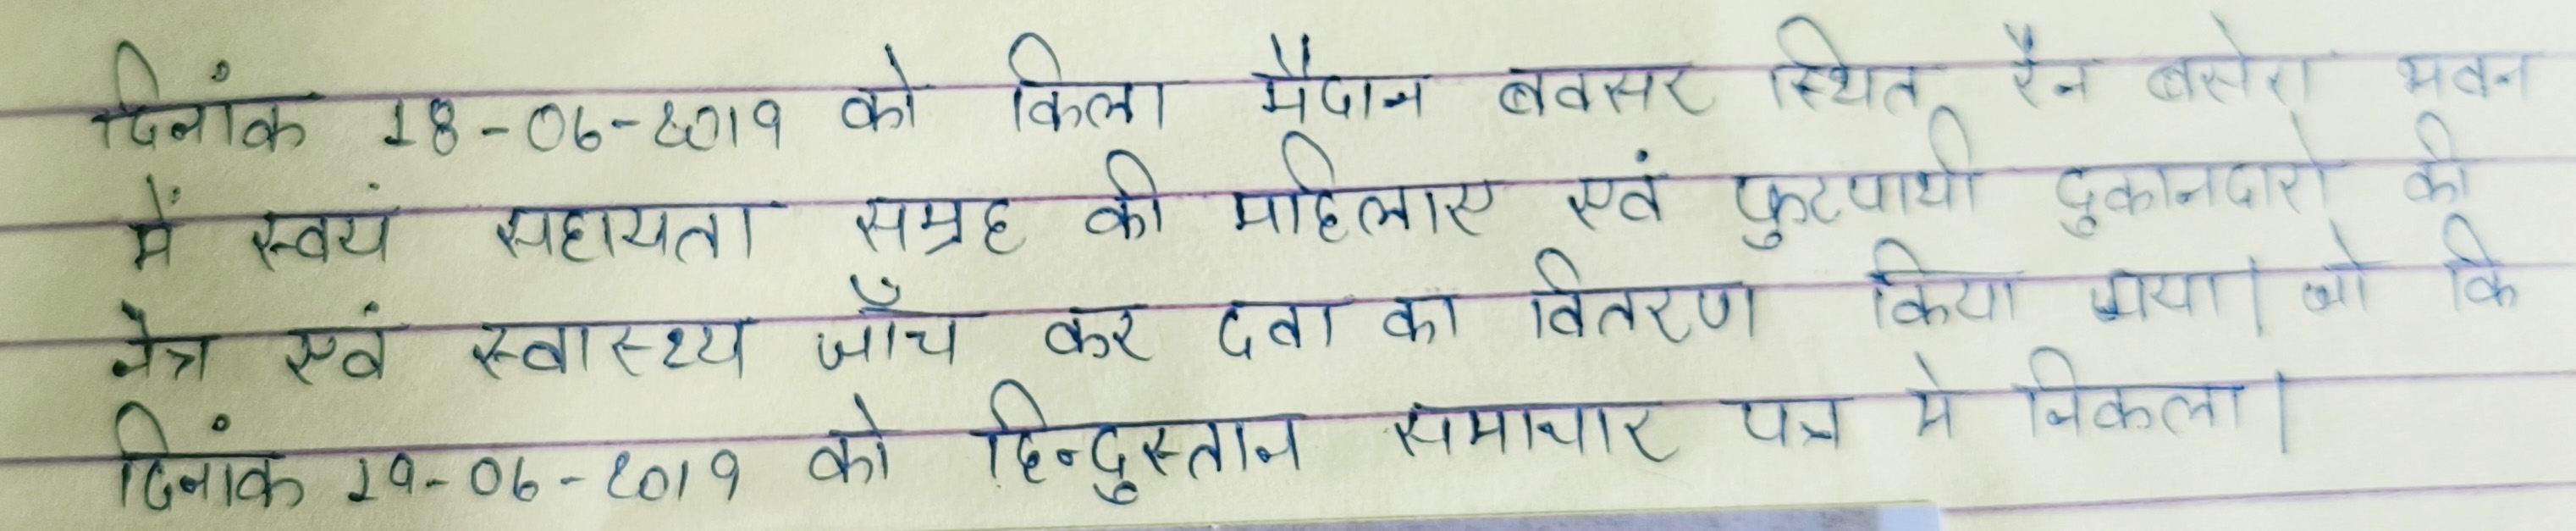 दिनांक 18-06-2019 को किला मैदान बक्सर स्थित रैन बसेरा भवन
में स्वयं सहायता समूह की महिलाए एवं फुटपाथी दुकानदारो की
नेत्र एवं स्वास्थ्य जाँच कर दवा का वितरण किया गया। जो कि
दिनांक 19-06-2019 को हिन्दुस्तान समाचार पत्र मे निकला।